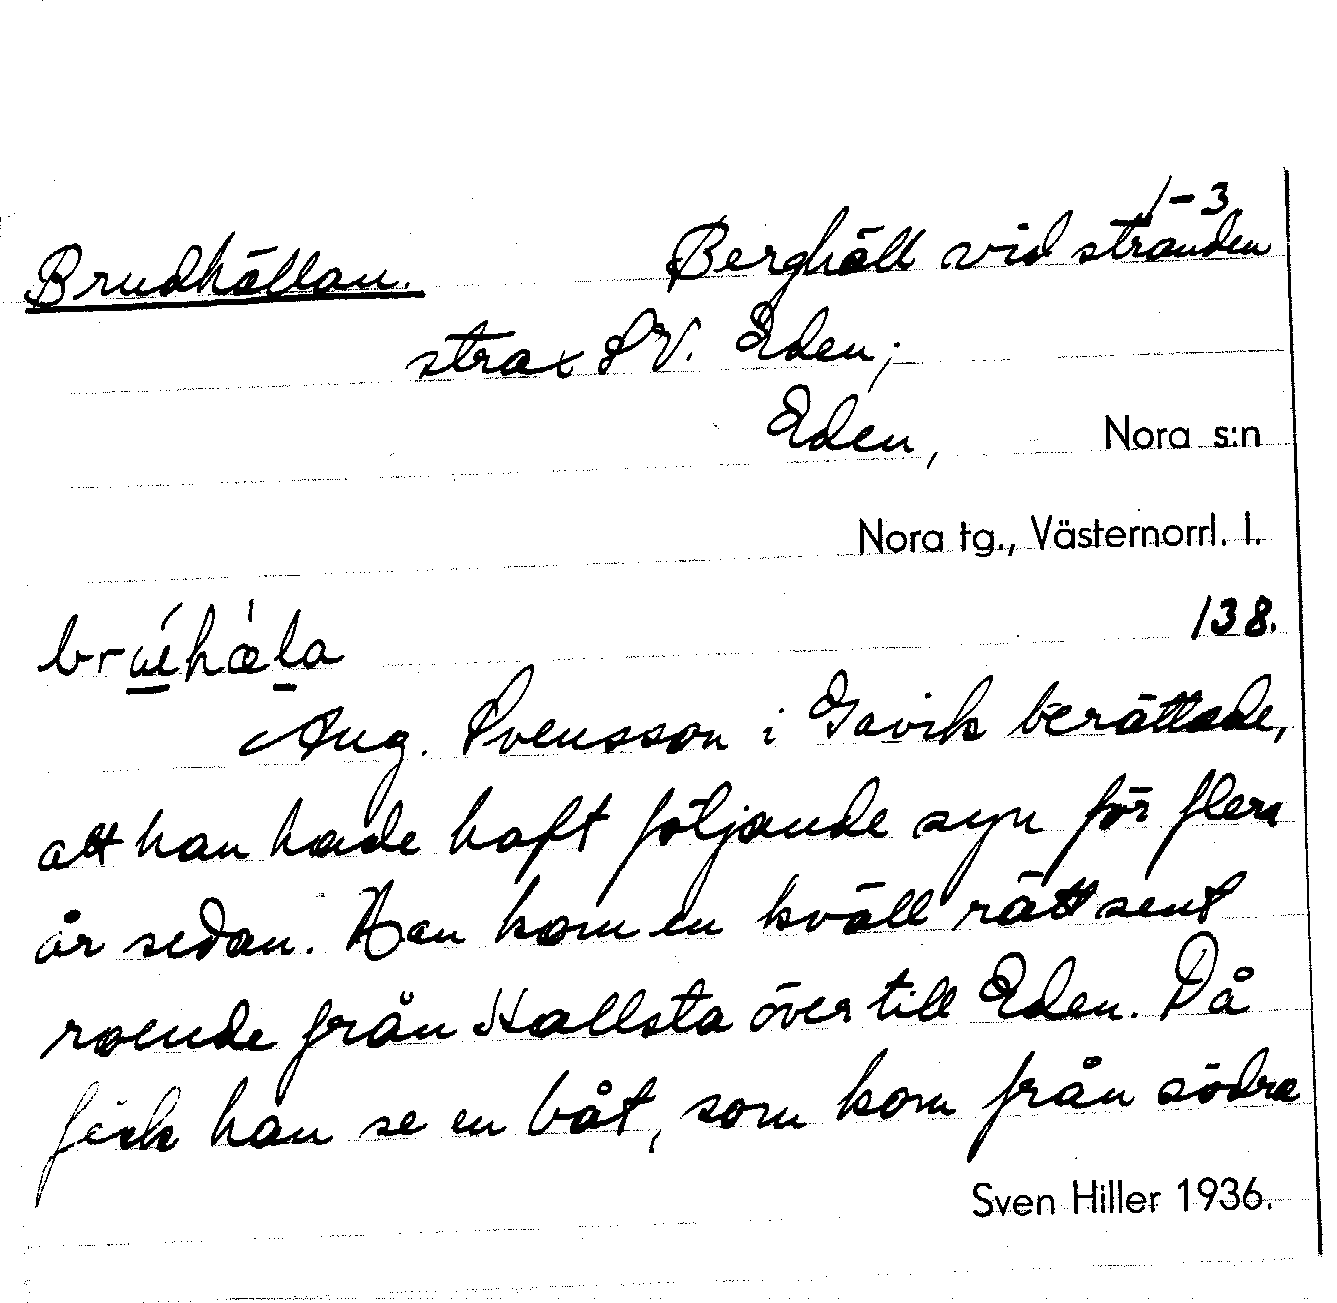 1-3
Brudhällan. Berghäll vid stranden
strax SV. Eden;
Eden, Nora s:n
Nora tg., Västernorrl. l.
138.
Aug. Svensson i Gavik berättade,
att han hade haft följande syn för flera
år sedan. Han kom en kväll rätt sent
roende från Hallsta över till Eden. Då
fick han se en båt, som kom från södra
Sven Hiller 1936.